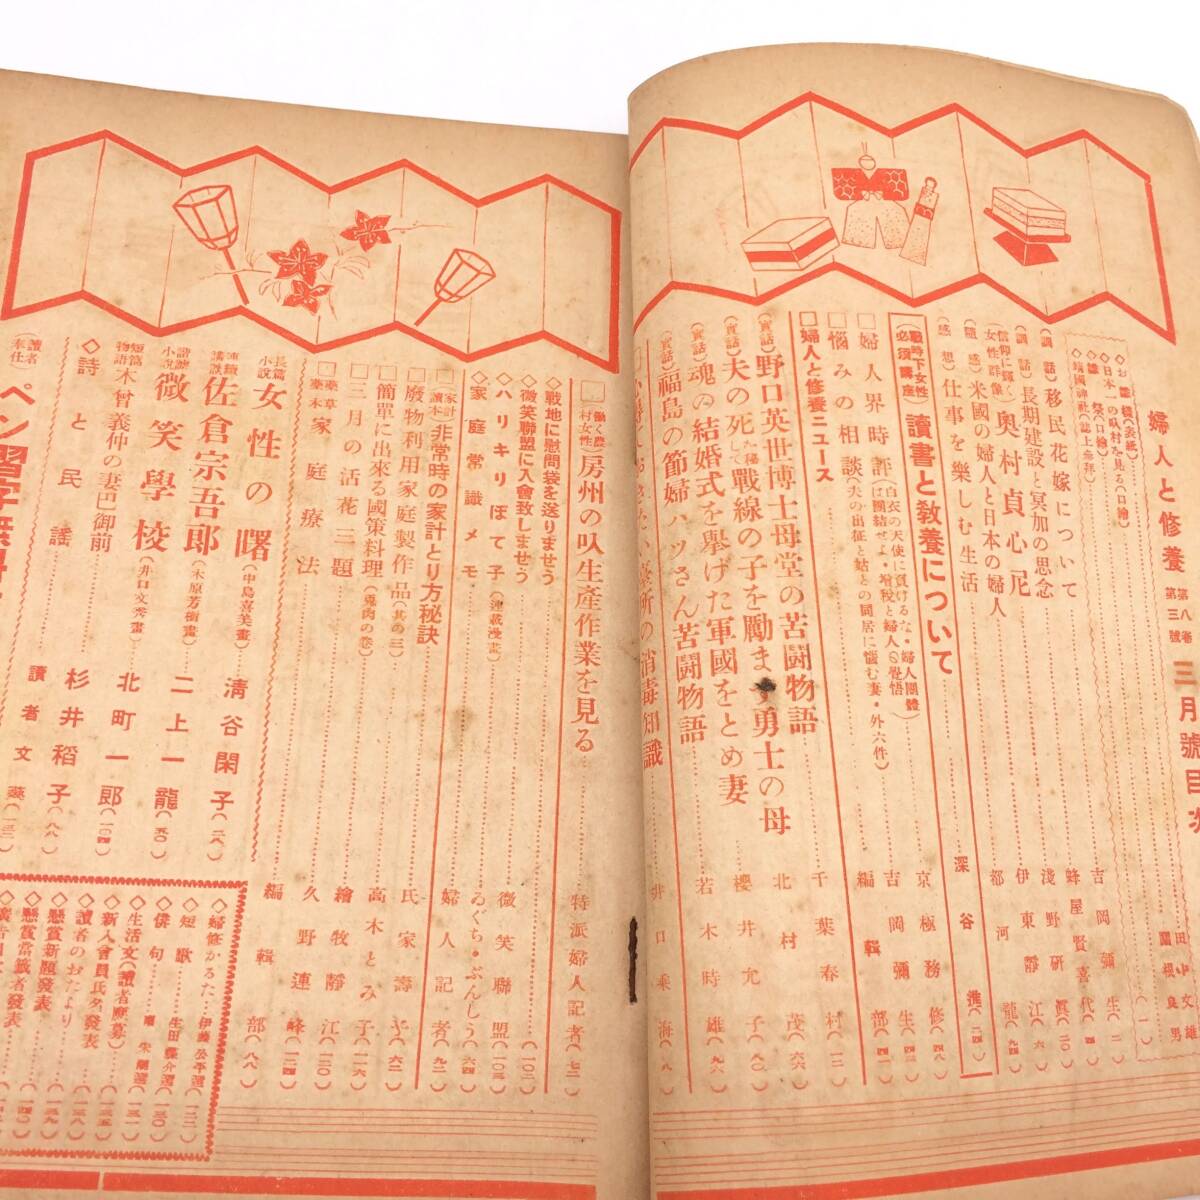 婦人と修養 第八巻 第三號 三月號目次
◇お雛様(表紙) 田中文雄
◇日本一の叺村を見る(口繪)
◇雛祭(口繪) 關根良男
◇靖國神社(誌上參拜) (一)
(訓話) 移民花嫁について 吉岡彌生(二)
(講話) 長期建設と冥加の思念 蜂屋賢喜代
信仰に輝く女性群像 奥村貞心尼 淺野研眞(二〇)
(隨感) 米國の婦人と日本の婦人 伊東靜江
(感想) 仕事を樂しむ生活 都河龍(九四)
(戰時下女性必須講座) 讀書と教養について 深谷進(二四)
□婦人界時評 (白衣の天使に負けるな・婦人團體は團結せよ・增税と婦人の覺悟) 京極務修(四八)
□悩みの相談 (夫の出征と姑との同居に悩む妻・外六件) 吉岡彌生(四三)
□婦人と修養ニュース 編輯部(四四)
(實話) 野口英世博士母堂の苦闘物語 千葉春村(一二)
(實話) 夫の死秘して戰線の子を勵ます勇士の母 北村茂(六六)
(實話) 魂の結婚式を擧げた軍國をとめ妻 櫻井允子(八〇)
(實話) 福島の節婦ハツさん苦闘物語 若木時雄(九六)
臺所の消毒知識 井口乗海(八)
□(働く農村女性) 房州の叺生産作業を見る 特派婦人記者(七二)
◇戰地に慰問袋を送りませう (一〇二)
◇微笑聯盟に入會致しませう 微笑聯盟(一〇三)
◇ハリキリぼて子(連載漫畫) ゐぐち・ぶんしう(六四)
◇家庭常識メモ 婦人記者(九二)
□(家計讀本) 非常時の家計とり方秘訣 氏家壽子(六二)
□廢物利用家庭製作品(其の三) 高木とみ子(一一六)
□簡單に出來る國策料理(兎肉の巻) 繪牧靜江(一二〇)
□三月の活花三題 久野連峰(一二四)
□藥草藥木家庭療法 編輯部(八八)
長篇小説 女性の曙(中島喜美畫) 清谷閑子(二八)
連續講談 佐倉宗吾郎(木原芳樹畫) 二上一龍(五〇)
諧謔小説 微笑學校(井口文秀畫) 北町一郎(一〇四)
短篇物語 木曾義仲の妻巴御前 杉井稻子(八八)
◇詩と民謠 讀者文藝(一三二)
(讀者奉仕) ペン習字
◇婦修かるた
◇短歌 伊藤公平選(一三二)
◇俳句 生田蝶介選(一三〇)
◇生活文(讀者應募) (一三一)
◇新人會員氏名發表 (一三五)
◇讀者のおたより (一三八)
◇懸賞新題發表 (一三九)
◇懸賞當籤者發表 (一四〇)